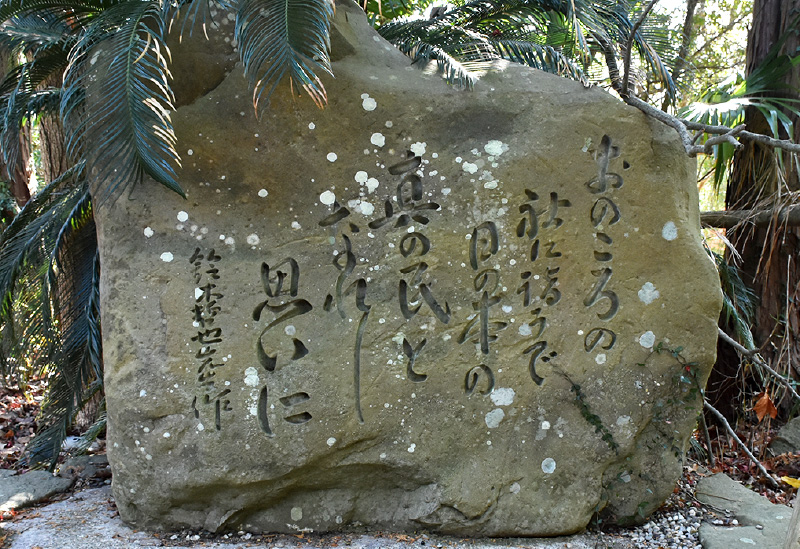 おのころの
社に詣うで
日の本の
真の民と
なれし
思いに
鈴木 作